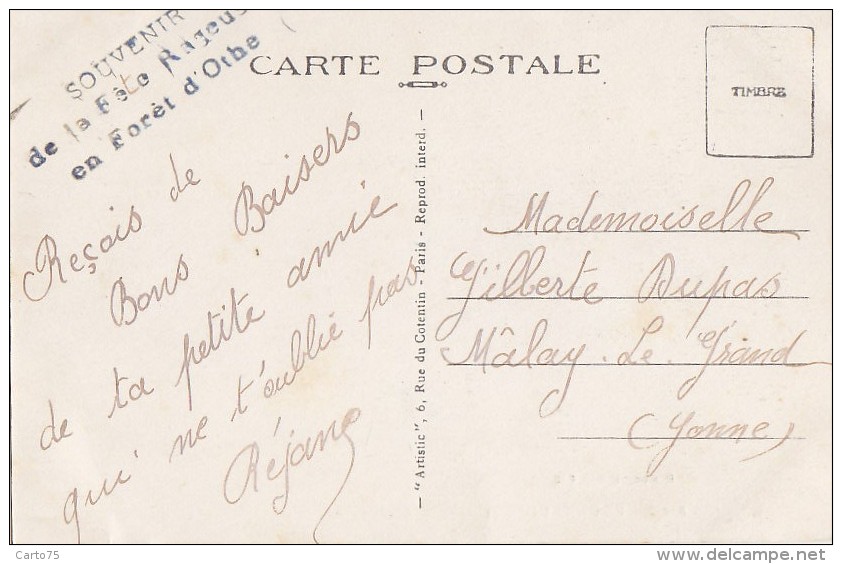 SOUVENIR
de la Fête
en Forêt d'Othe
CARTE POSTALE
TIMBRE
Reçois de
Bons Baisers
de ta petite amie
qui ne t'oublie pas
Réjane
— "Artistic", 6, Rue du Cotentin - Paris - Reprod. interd. —
Mademoiselle
Gilberte Dupas
Mâlay-Le-Grand
(Yonne)
Carto75
www.delcampe.net